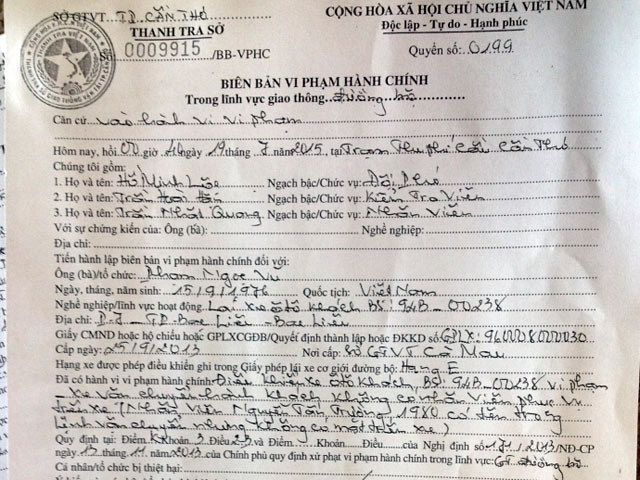 SỞ GTVT TP. CẦN THƠ
CỘNG HÒA XÃ HỘI CHỦ NGHĨA VIỆT NAM
THANH TRA SỞ
Độc lập - Tự do - Hạnh phúc
Số 0009915 /BB-VPHC
Quyển số: 0199
BIÊN BẢN VI PHẠM HÀNH CHÍNH
Trong lĩnh vực giao thông đường bộ
Căn cứ vào hành vi vi phạm
Hôm nay, hồi 00 giờ 40 ngày 19 tháng 7 năm 2015, tại Trạm Thu phí Cầu Cần Thơ
Chúng tôi gồm:
1. Họ và tên: Hồ Minh Ngạch bậc/Chức vụ: Đội Phó
2. Họ và tên: Trần Ngạch bậc/Chức vụ: Kiểm Tra Viên
3. Họ và tên: Trần Nhật Quang Ngạch bậc/Chức vụ: Nhân Viên
Với sự chứng kiến của: Ông (bà): Nghề nghiệp:
Địa chỉ:
Tiến hành lập biên bản vi phạm hành chính đối với:
Ông (bà)/tổ chức: Phạm Ngọc Vũ
Ngày, tháng, năm sinh: 15/9/1976 Quốc tịch: Việt Nam
Nghề nghiệp/lĩnh vực hoạt động: Lái xe ôtô khách BS: 94B-00238
Địa chỉ: TP Bạc Liêu - Bạc Liêu
Giấy CMND hoặc hộ chiếu hoặc GPLXCGĐB/Quyết định thành lập hoặc ĐKKD số GPLX: 960008000030
Cấp ngày: 25/9/2013 Nơi cấp: Sở GTVT Cà Mau
Hạng xe được phép điều khiển ghi trong Giấy phép lái xe cơ giới đường bộ: Hạng E
Đã có hành vi vi phạm hành chính: Điều khiển xe ôtô khách, BS: 94B-00238 vi phạm
- Xe vận chuyển hành khách không có nhân viên phục vụ
trên xe (Nhân viên Nguyễn Tấn Trường, 1980 có tên trong
vận chuyển nhưng không có mặt trên xe)
Quy định tại: Điểm K Khoản 3 Điều 23 Điểm Khoản Điều của Nghị định số 171/2013/NĐ-CP
ngày 13 tháng 11 năm 2013 của Chính phủ quy định xử phạt vi phạm hành chính trong lĩnh vực: GT đường bộ
Cá nhân/tổ chức bị thiệt hại: